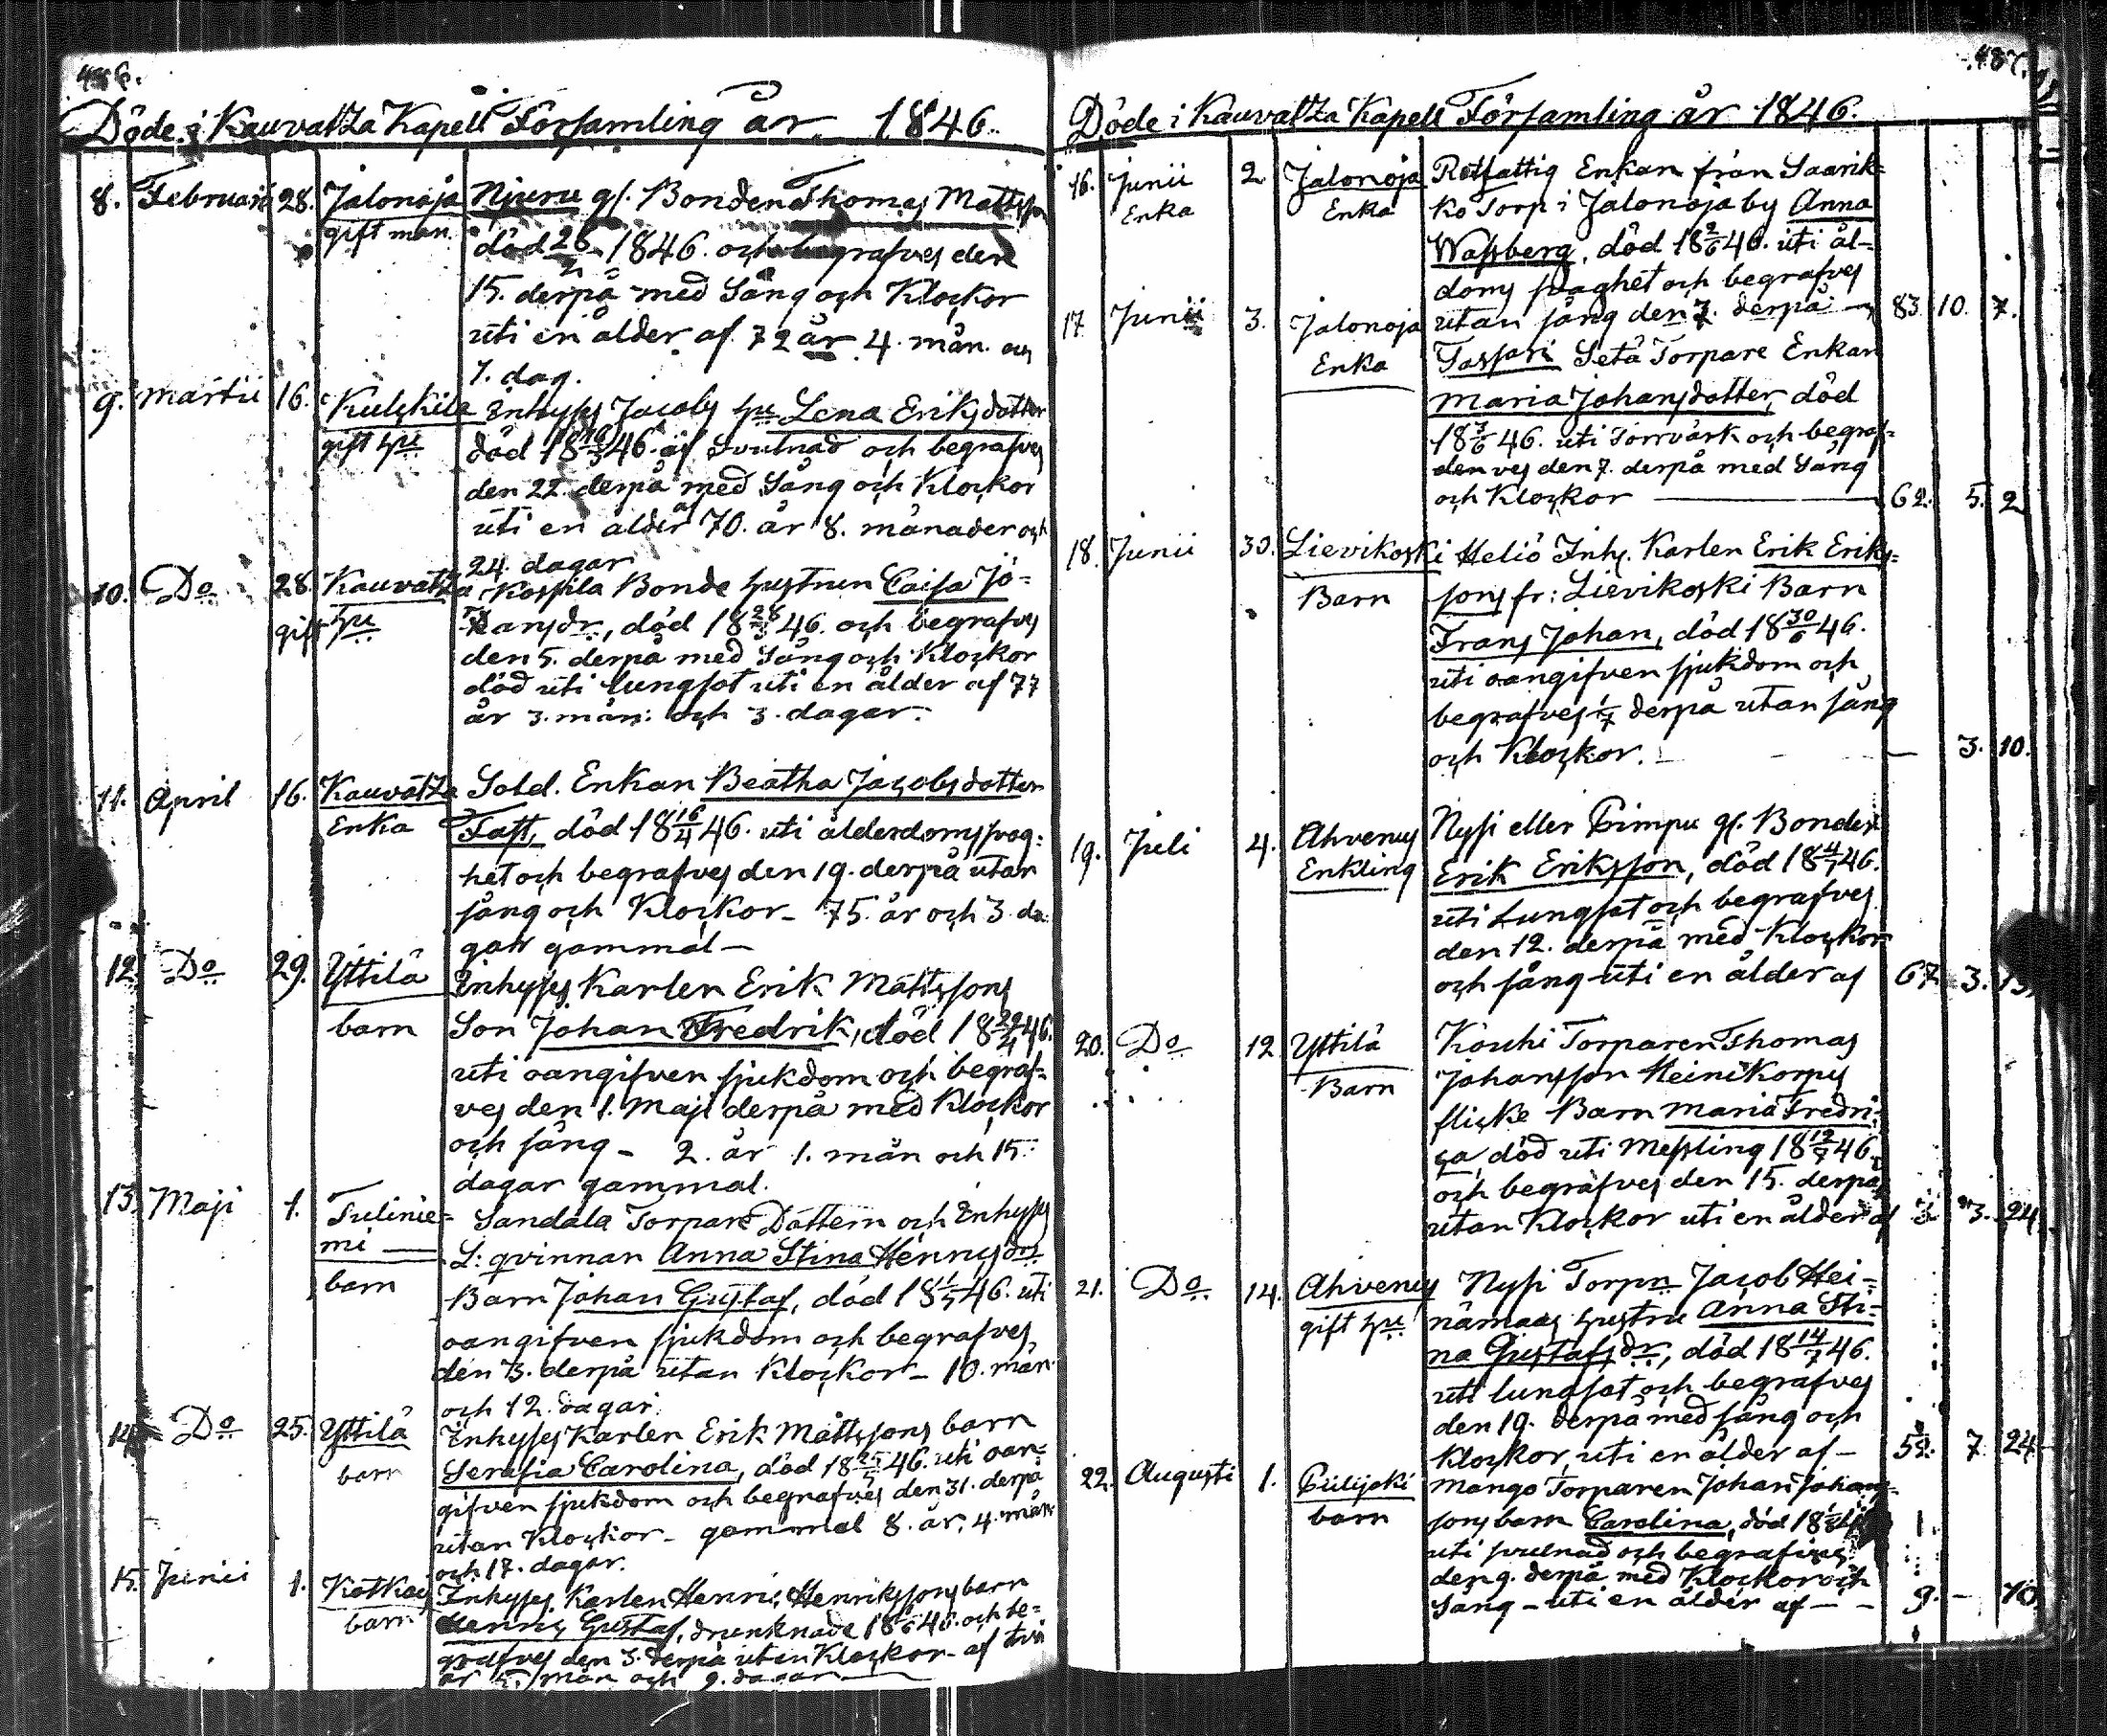 486.
Döde i Kauvatza Kapell Församling år 1846.
8. Februarii 28. Jalonoja Njuru gl. Bonden Thomas Mattsson
gift man. död 28/2 1846. och begrafves den
15. derpå med Sång och Klockor
uti en ålder af 72 år 4. mån. och
7. dag.
9. Martii 16. Kulkila Inhyses Jacobs hu Lena Eriksdotter
gift hu död 18 16/3 46. af Svulnad och begrafves
den 22. derpå med Sång och Klockor
uti en ålder af 70. år 8. månader och
24. dagar
10. Do 28. Kauvatza Kospila Bonde hustrun Caisa Jo-
gift hu hansdr, död 18 28/3 46. och begrafves
den 5. derpå med Sång och Klockor
död uti lungsot uti en ålder af 77
år 3. mån: och 3. dagar.
11. April 16. Kauvatza Sold. Enkan Beatha Jacobsdotter
Enka Fast, död 18 16/4 46. uti ålderdomssvag:
het och begrafves den 19. derpå utan
sång och Klockor - 75. år och 3. da
gar gammal -
12. Do 29. Yttilä Inhyses Karlen Erik Mattssons
barn Son Johan Fredrik, död 18 29/4 46.
uti oangifven sjukdom och begraf-
ves den 1. Maji derpå med Klockor
och sång - 2. år 1. mån och 15.
dagar gammal.
13. Maji 1. Tulinie- Sandala Torpare Dottern och Inhyses
mi L: qvinnan Anna Stina Hennsdrs
barn Barn Johan Gustaf, död 18 1/5 46. uti
oangifven sjukdom och begrafves
den 3. derpå utan Klockor - 10. mån
och 12. dagar.
14. Do 25. Yttilä Inhyses Karlen Erik Mattssons barn
barn Serafia Carolina, död 18 25/5 46. uti oan-
gifven sjukdom och begrafves den 31. derpå
utan Klockor - gammal 8. år, 4. mån
och 17. dagar.
15. Junii 1. Kotkas Inhyses Karlen Henric Henrikssons barn
barn Henric Gustaf, drunknade 18 1/6 46. och be-
grafves den 3. derpå utan Klockor - af två
år 5. mån och 9. dagar
487.
Döde i Kauvatza Kapell Församling år 1846.
16. Junii 2 Jalonoja Rotfattig Enkan från Saarik-
Enka Enka ko Torp i Jalonoja by Anna
Wassberg, död 18 2/6 46. uti ål-
doms svaghet och begrafves
utan sång den 7. derpå 83 10. 7.
17 Junii 3. Jalonoja Tassari Setä Torpare Enkan
Enka Maria Johansdotter, död
18 3/6 46. uti Torrvärk och begraf-
den ves den 7. derpå med Sång
och Klockor 62. 5. 2
18. Junii 30. Lievikoski Heliö Inhs. Karlen Erik Eriks-
Barn sons fr: Lievikoski Barn
Frans Johan, död 18 30/6 46.
uti oangifven sjukdom och
begrafves 1/7 derpå utan sång
och Klockor. - 3. 10.
19. Juli 4. Ahvenus Nysi eller Pimpu gl. Bonden
Enkling Erik Eriksson, död 18 4/7 46.
uti Lungsot och begrafves
den 12. derpå med Klockor
och sång uti en ålder af 67 3.
20. Do 12 Yttilä Kouhi Torparen Thomas
Barn Johansson Heinikorpus
flicke Barn Maria Fredri-
ca, död uti Messling 18 12/7 46.
och begrafves den 15. derpå
utan Klockor uti en ålder af 3. 24.
21. Do 14. Ahvenus Nysi Torpn Jacob Hei-
gift hu nämaas hustru Anna Sti-
na Gustafsdr, död 18 14/7 46.
uti lungsot och begrafves
den 19. derpå med sång och
Klockor, uti en ålder af - 7 24
22. Augusti 1. Piilijoki Mango Torparen Johan Johans-
barn sons barn Carolina, död 18 1/8
uti svulnad och begrafves
den 9. derpå med Klockor och
Sång - uti en ålder af - - 9. - 10